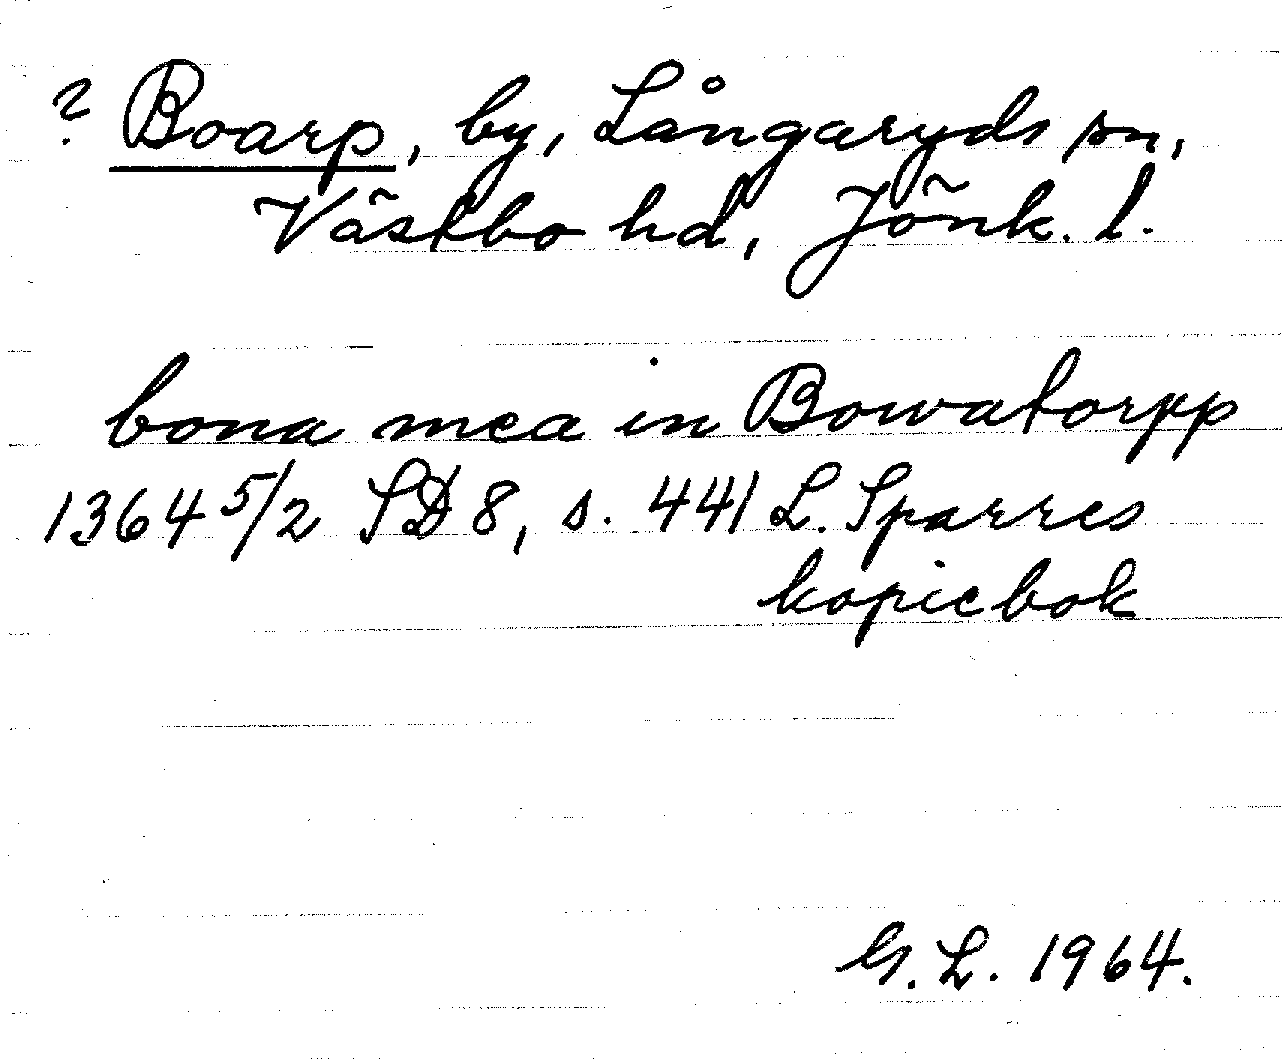 ? Boarp, by, Långaryds sn,
Västbo hd, Jönk. l.
bona mea in Bowatorpp
1364 5/2 SD 8, s. 441 L. Sparres
kopiebok
G. L. 1964.